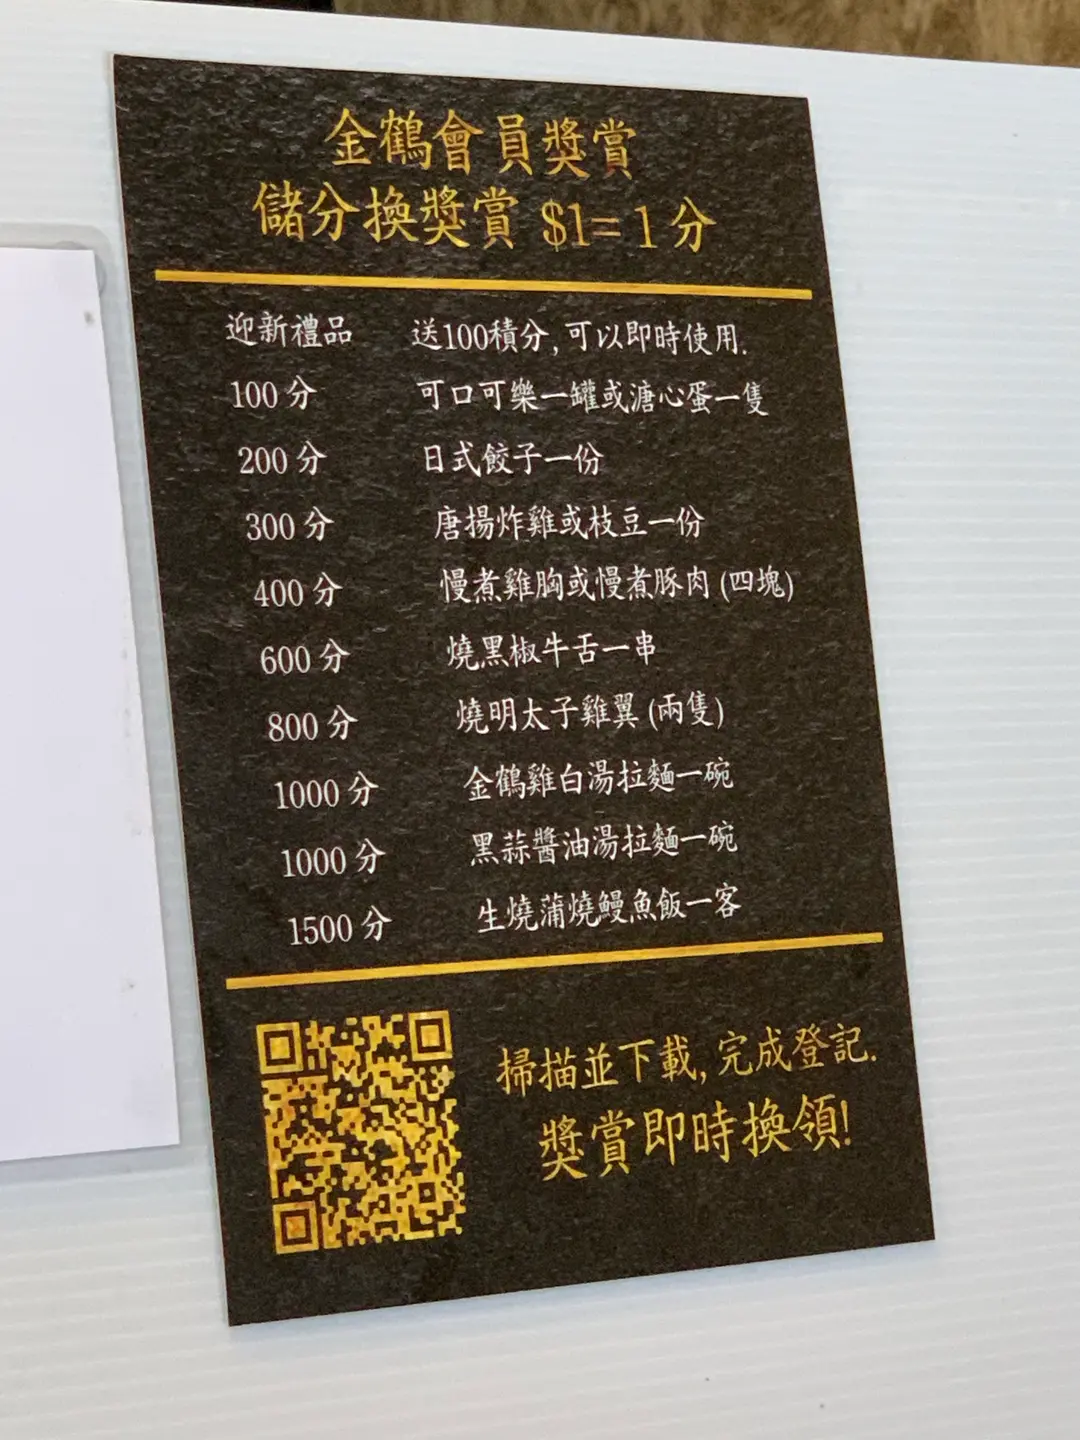 金鶴會員獎賞
儲分換獎賞 $1= 1 分
迎新禮品 送100積分, 可以即時使用.
100 分 可口可樂一罐或溏心蛋一隻
200 分 日式餃子一份
300 分 唐揚炸雞或枝豆一份
400 分 慢煮雞胸或慢煮豚肉 (四塊)
600 分 燒黑椒牛舌一串
800 分 燒明太子雞翼 (兩隻)
1000 分 金鶴雞白湯拉麵一碗
1000 分 黑蒜醬油湯拉麵一碗
1500 分 生燒蒲燒鰻魚飯一客
掃描並下載, 完成登記.
獎賞即時換領!